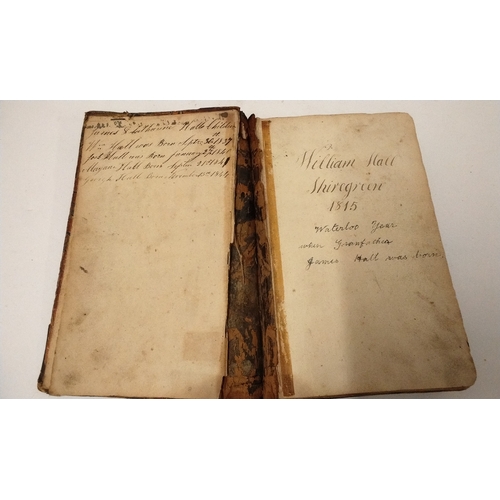 James & Catharine Halls Children
Wm Hall was Born Septr 30th 1837
Hall was Born January 29th 1840
Hall Born Septr 1841
Hall Born 1844
William Hall
Shiregreen
1815
Waterloo Year
when Granfather
James Hall was born